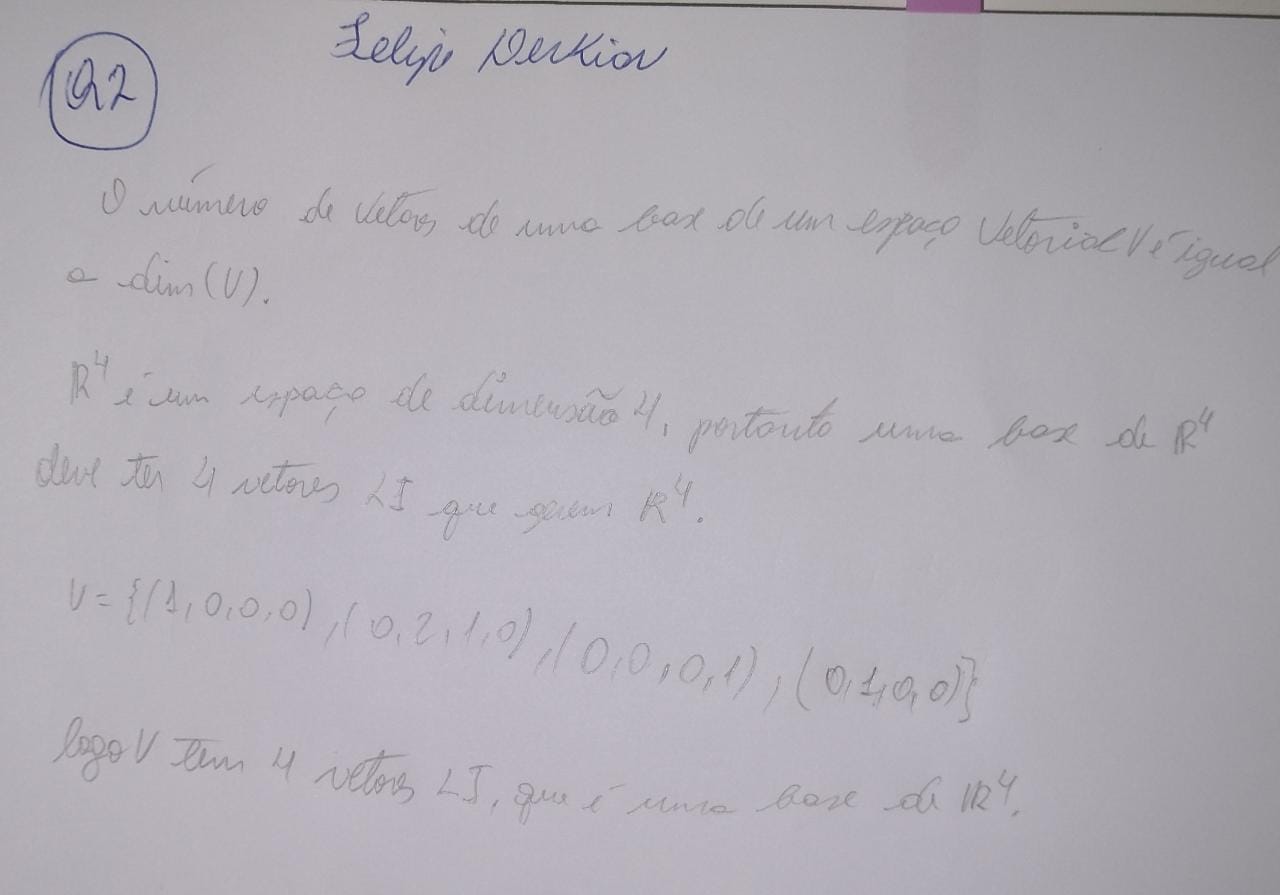 Q2
Felipe Derkian
O número de vetores de uma base de um espaço vetorial V é igual
a dim(V).
R⁴ é um espaço de dimensão 4, portanto uma base de R⁴
deve ter 4 vetores LI que gerem R⁴.
V = {(1,0,0,0),(0,2,1,0),(0,0,0,1),(0,1,0,0)}
logo V tem 4 vetores LI, que é uma base de R⁴.